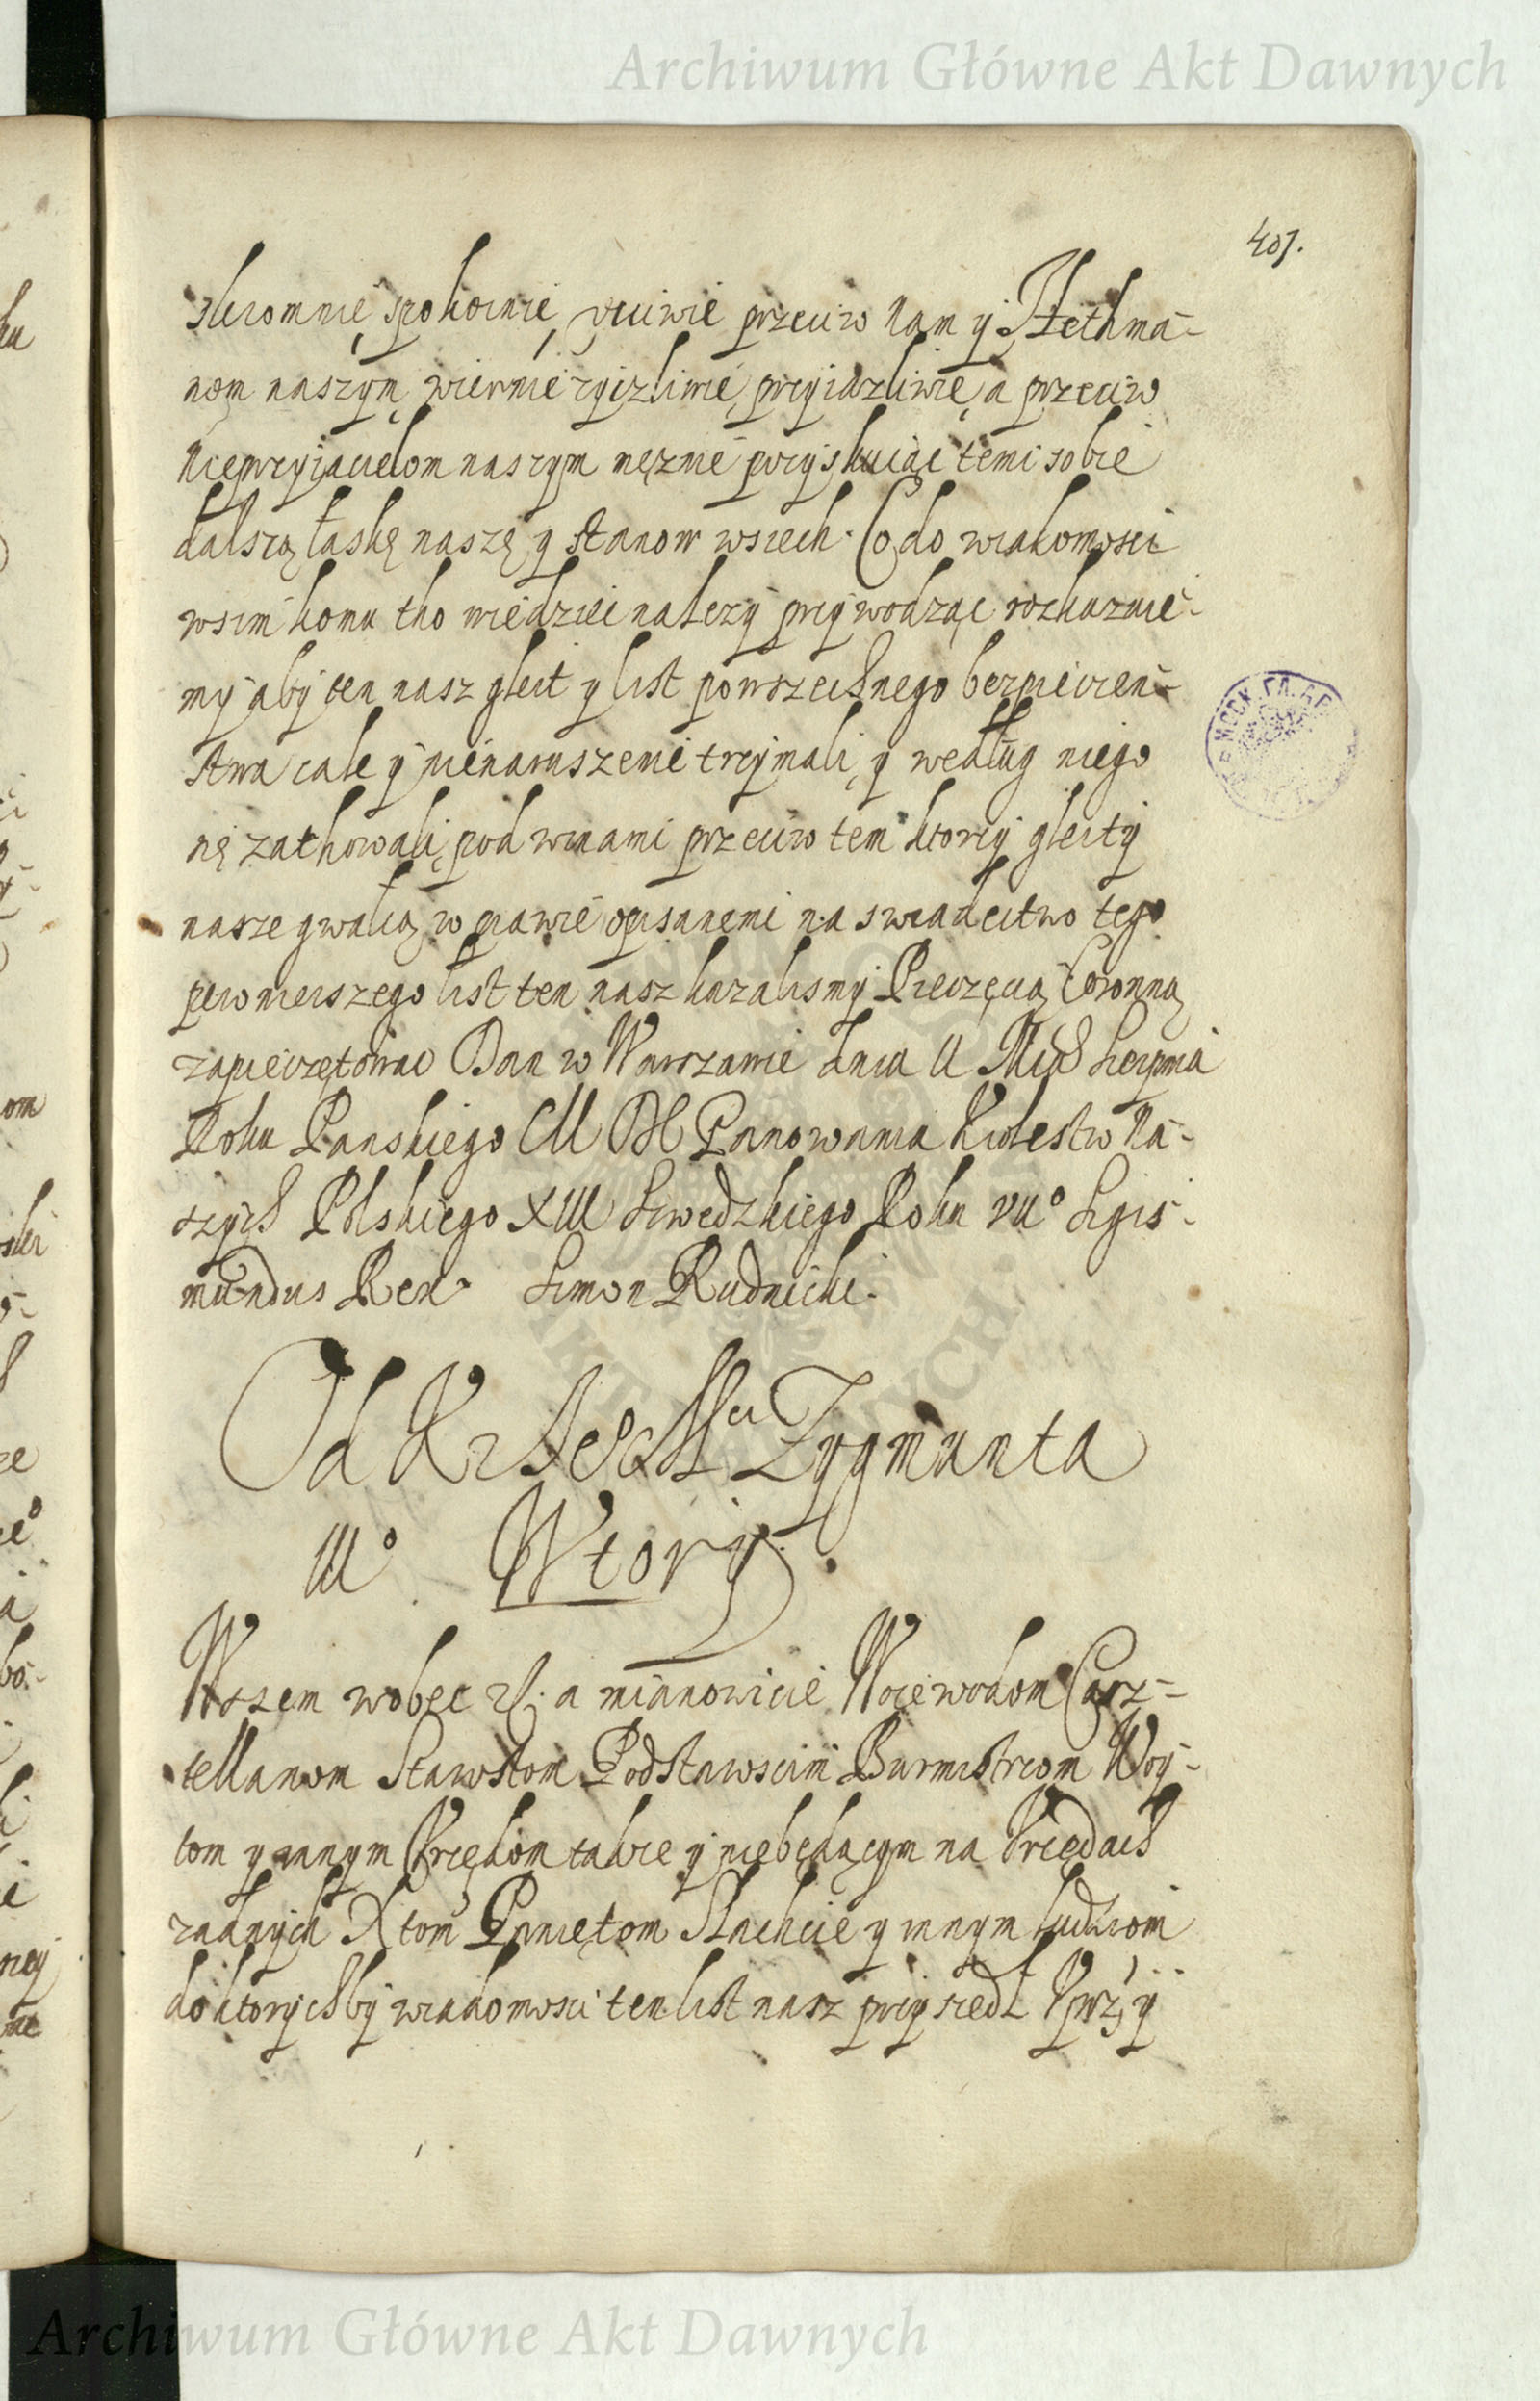 Archiwum Główne Akt Dawnych
407.
skromnie spokoinie vcciwie przeciw nam y Hethma-
nom naszym wiernie życzliwie przyiazliwie a przeciw
nieprzyiacielom naszym mężnie pozyskuiąc temi sobie
dalszą łaskę naszę y stanow wszech. Co do wiadomosci
wszem komu tho wiedziec nalezy przywodząc roskazuie-
my aby ten nasz gleit y list powszechnego bezpieczen-
stwa cale y nienaruszenie trzymali y według niego
się zachowali pod winami przeciw tem ktorzy gleity
nasze gwałcą w prawie opisanemi na swiadectwo tego
pewnieiszego list ten nasz kazalismy Pieczęcią Coronną
zapieczętowac Dan w Warszawie dnia II Mca Sierpnia
Roku Panskiego M DC Panowania Krolestw na-
szych Polskiego XIII Szwedzkiego Roku VII° Sigis-
mundus Rex Simon Rudnicki.
Od Kr Je° Mci Zygmunta
III° Wtory.
Wszem wobec a mianowicie Woiewodom Casz-
tellanom Starostom Podstaroscim Burmistrzom Woy-
tom y innym Vrzędom takze y niebędącym na Vrzędach
zadnych Xtom Paniętom Slachcie y innym ludziom
do ktorychby wiadomosci ten list nasz przyszedł
Archiwum Główne Akt Dawnych